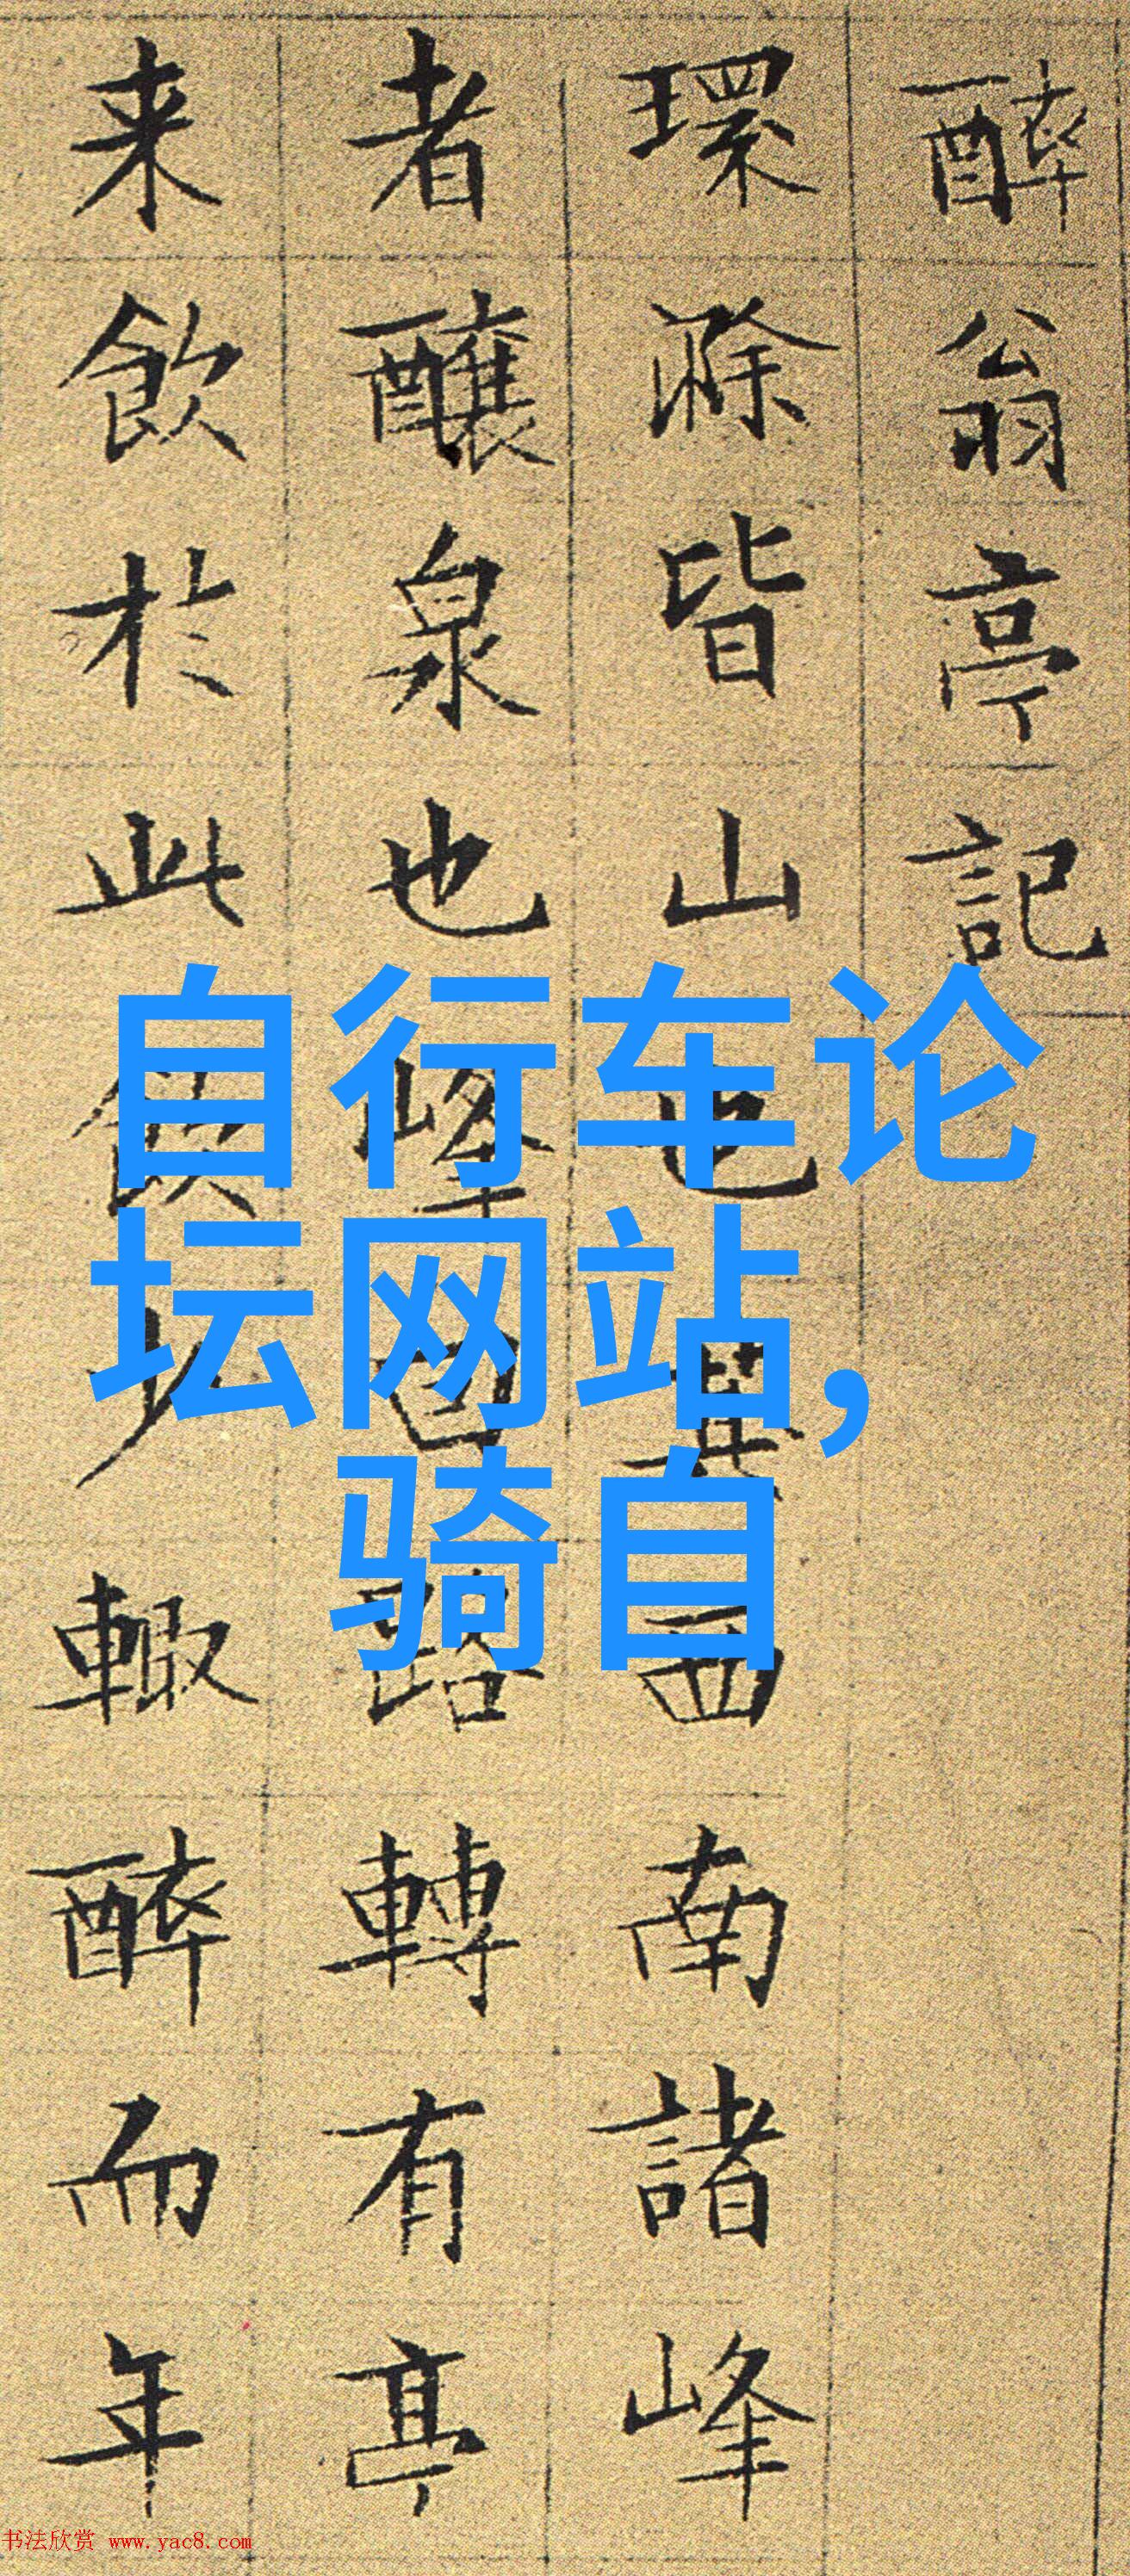 醉翁亭記
環滁皆山也其西南諸峰
者釀泉也峰回路轉有亭
来飲於此飲少輒醉而年
自行车论
坛网站,
骑自
书法欣赏 www.yac8.com